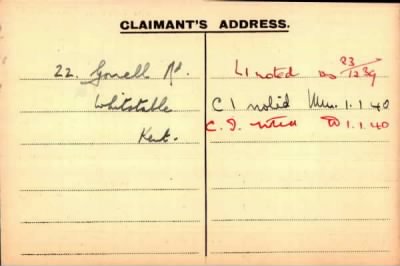 CLAIMANT'S ADDRESS.
22. Gorrell Rd.
Whitstable
Kent.
LI noted 23/12 39
C I noted 1.1.40
C. I. noted 1.1.40